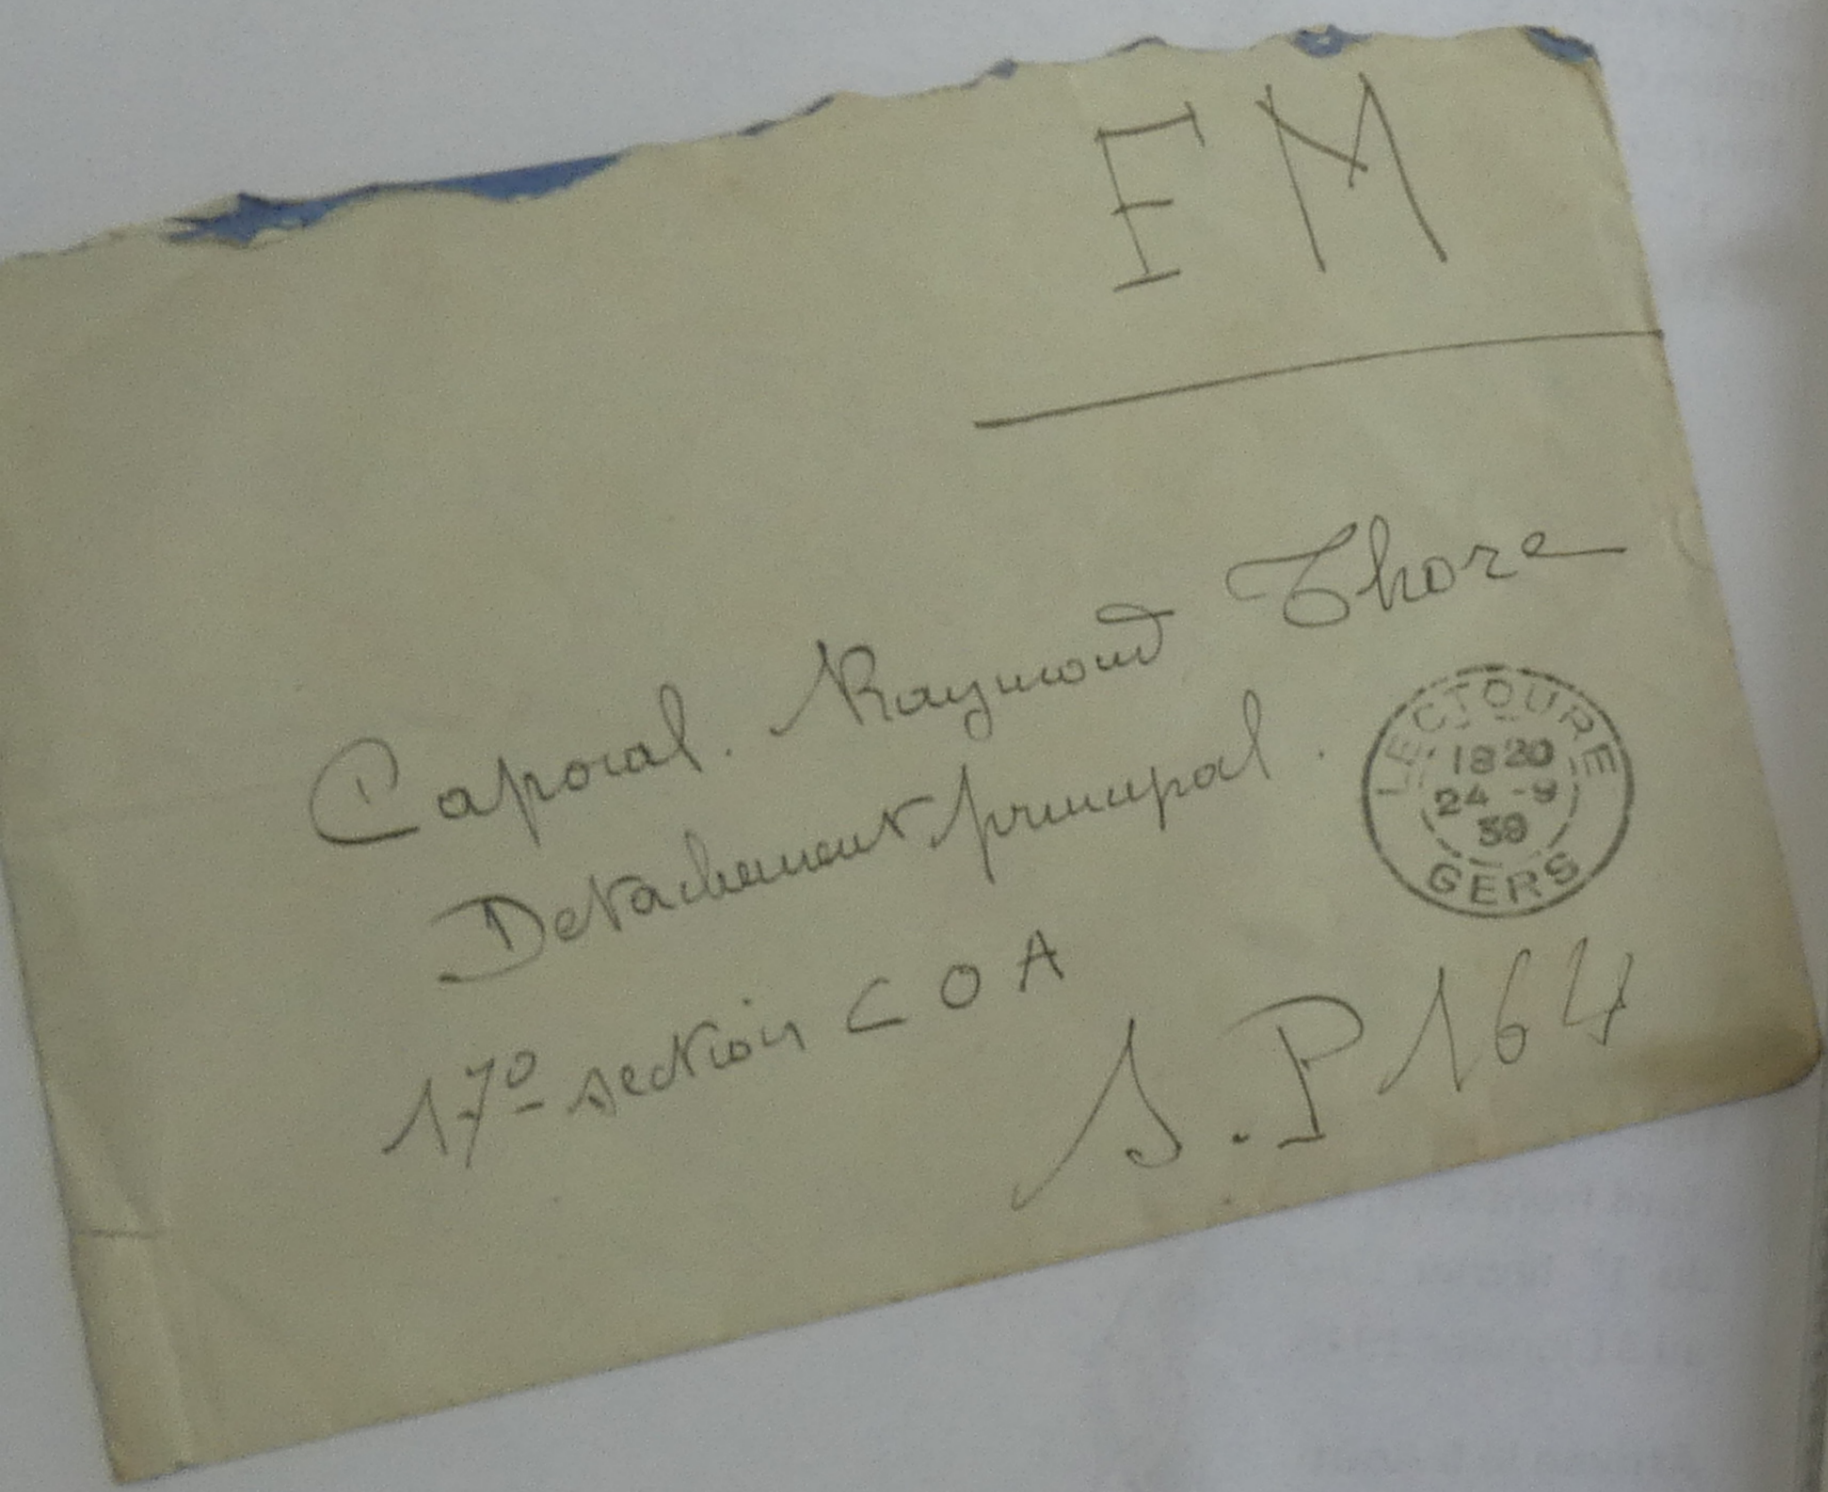 FM
Caporal. Raymond Thore
Detachement principal.
17º section COA
S.P 164
LECTOURE
18 20
24 - 9
39
GERS